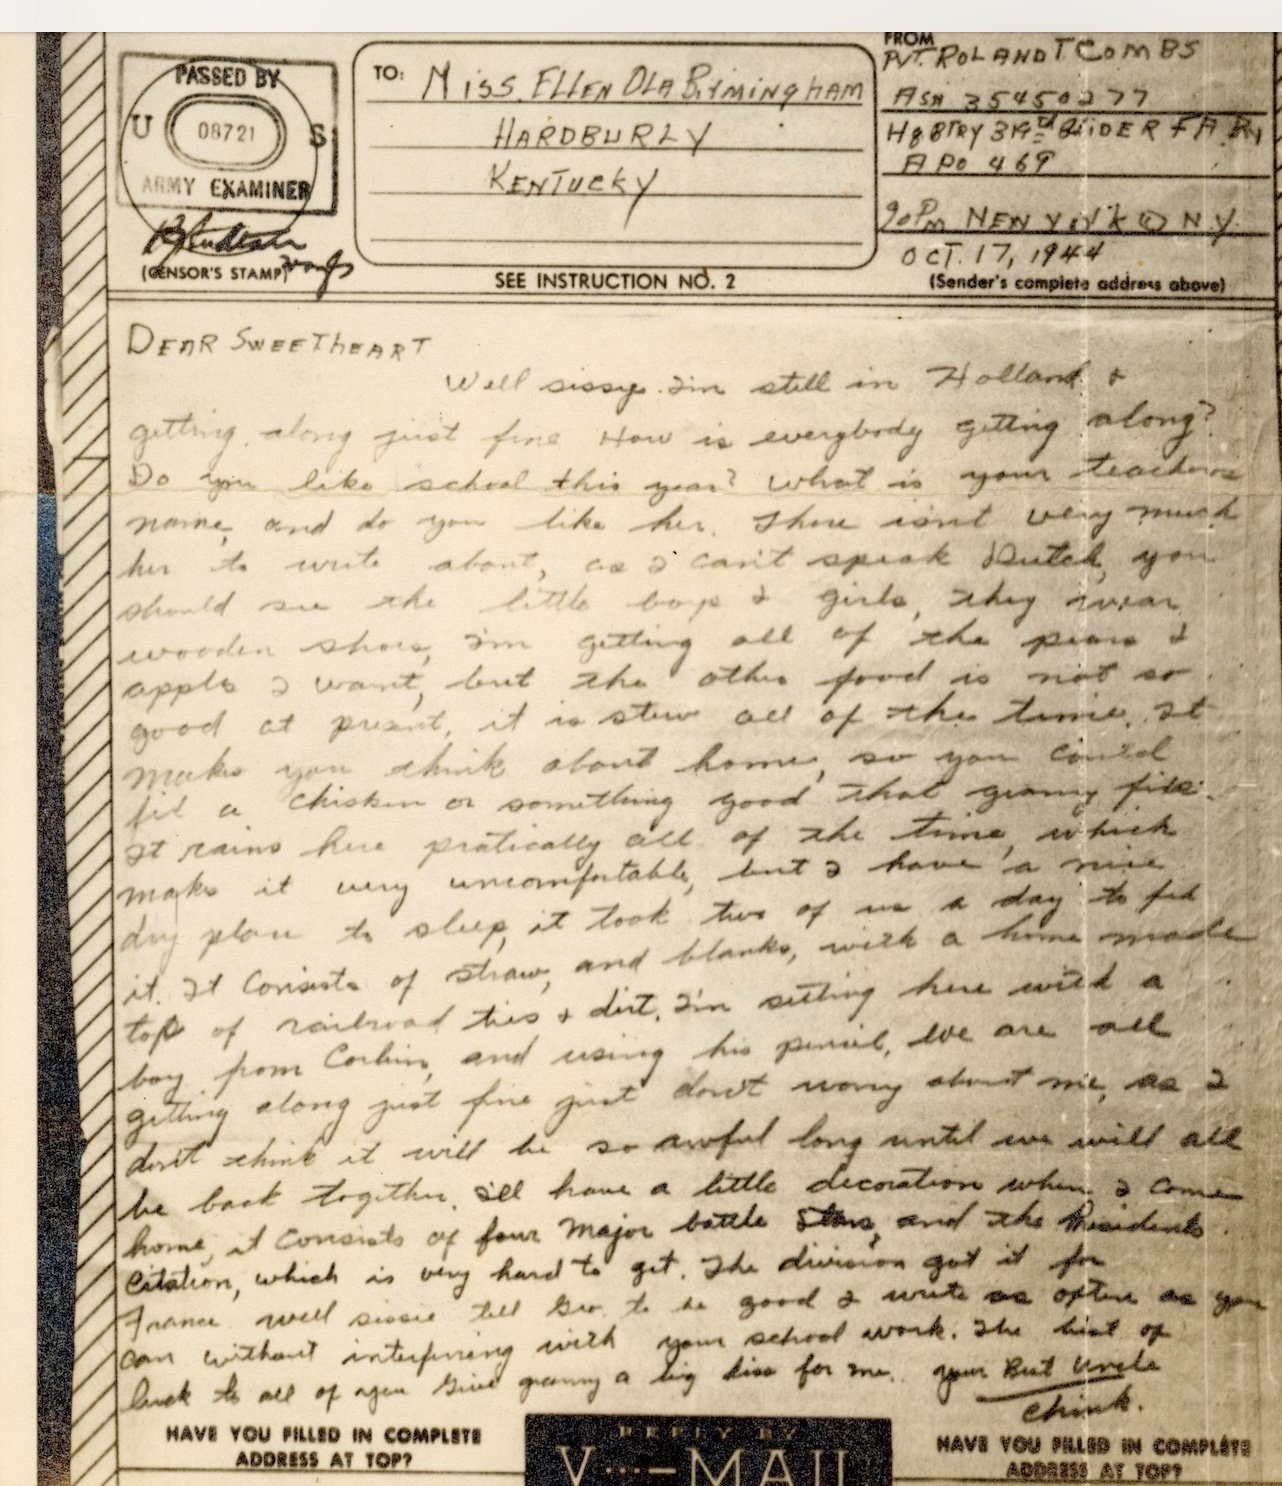 PASSED BY
U S
08721
ARMY EXAMINER
(CENSOR'S STAMP)
TO: MISS. ELLEN OLA BIRMINGHAM
HARDBURLY
KENTUCKY
SEE INSTRUCTION NO. 2
FROM
PVT. ROLAND T. COMBS
ASN 35450277
HQ BTRY 319th GLIDER F A BN
APO 469
90 PM NEW YORK N Y.
OCT. 17, 1944
(Sender's complete address above)
DEAR SWEETHEART
Well sissy. I'm still in Holland &
getting along just fine How is everybody getting along?
Do you like school this year? What is your teachers
name, and do you like her. There isn't very much
her to write about, as I can't speak Dutch, you
should see the little boys & girls, they wear
wooden shoes, I'm getting all of the pears &
appls I want, but the other food is not so
good at present, it is stew all of the time. It
makes you think about home, so you could
a chicken or something good that granny
It rains here pratically all of the time, which
makes it very uncomfortable, but I have a nice
dry place to sleep, it took two of us a day to
it. It consists of straw, and blanks, with a home made
top of railroad ties & dirt. I'm setting here with a
boy from Corbin, and using his pencil, We are all
getting along just fine just don't worry about me, as I
don't think it will be so awful long until we will all
be back together. I'll have a little decoration when I come
home, it consists of four major battle stars, and the Presidents
citation, which is very hard to get. The division got it for
France well sissie tell Geo. to be good & write as often as you
can without interfering with your school work. The best of
luck to all of you Give granny a big kiss for me. your Best Uncle
Chink.
HAVE YOU FILLED IN COMPLETE
ADDRESS AT TOP?
REPLY BY
V···—MAIL
HAVE YOU FILLED IN COMPLETE
ADDRESS AT TOP?